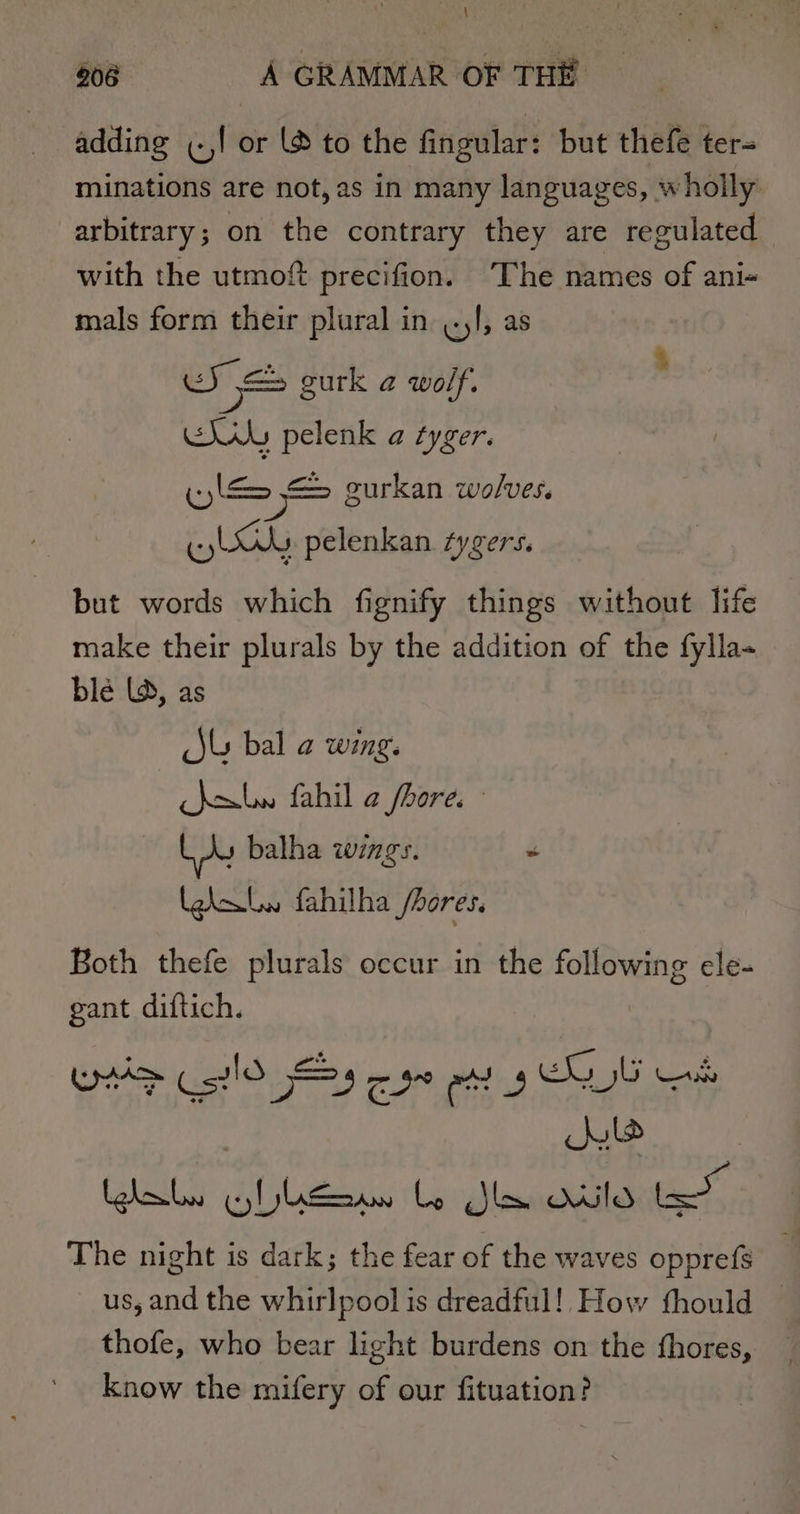 206 A GRAMMAR OF THE
adding ان or ها to the ſingular: but theſe ter-
minations are not, as in many languages, wholly
arbitrary; on the contrary they are regulated
with the utmoſt preciſion. The names of ani-
mals form their plural in ان, as
گرگ gurk a wolf.
پلنگ pelenk a tyger.
گرگان gurkan wolves.
پلنگان pelenkan tygers.
but words which ſignify things without life
make their plurals by the addition of the ſylla-
ble ها, as
بال bal a wing.
ساحل ſahil a ſhore.
بالها balha wings.
ساحلها ſahilha ſhores.
Both theſe plurals occur in the following ele-
gant diſtich.
شب تاریک و بیم موج و
هایل
کجا دانند حال ما سبکباران ساحلها
The night is dark; the fear of the waves oppreſs
us, and the whirlpool is dreadful! How ſhould
thoſe, who bear light burdens on the ſhores,
know the miſery of our ſituation?